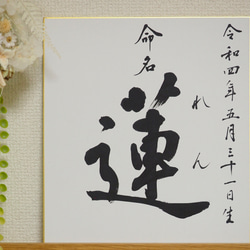 令和四年五月三十一日生
命名
蓮
れん